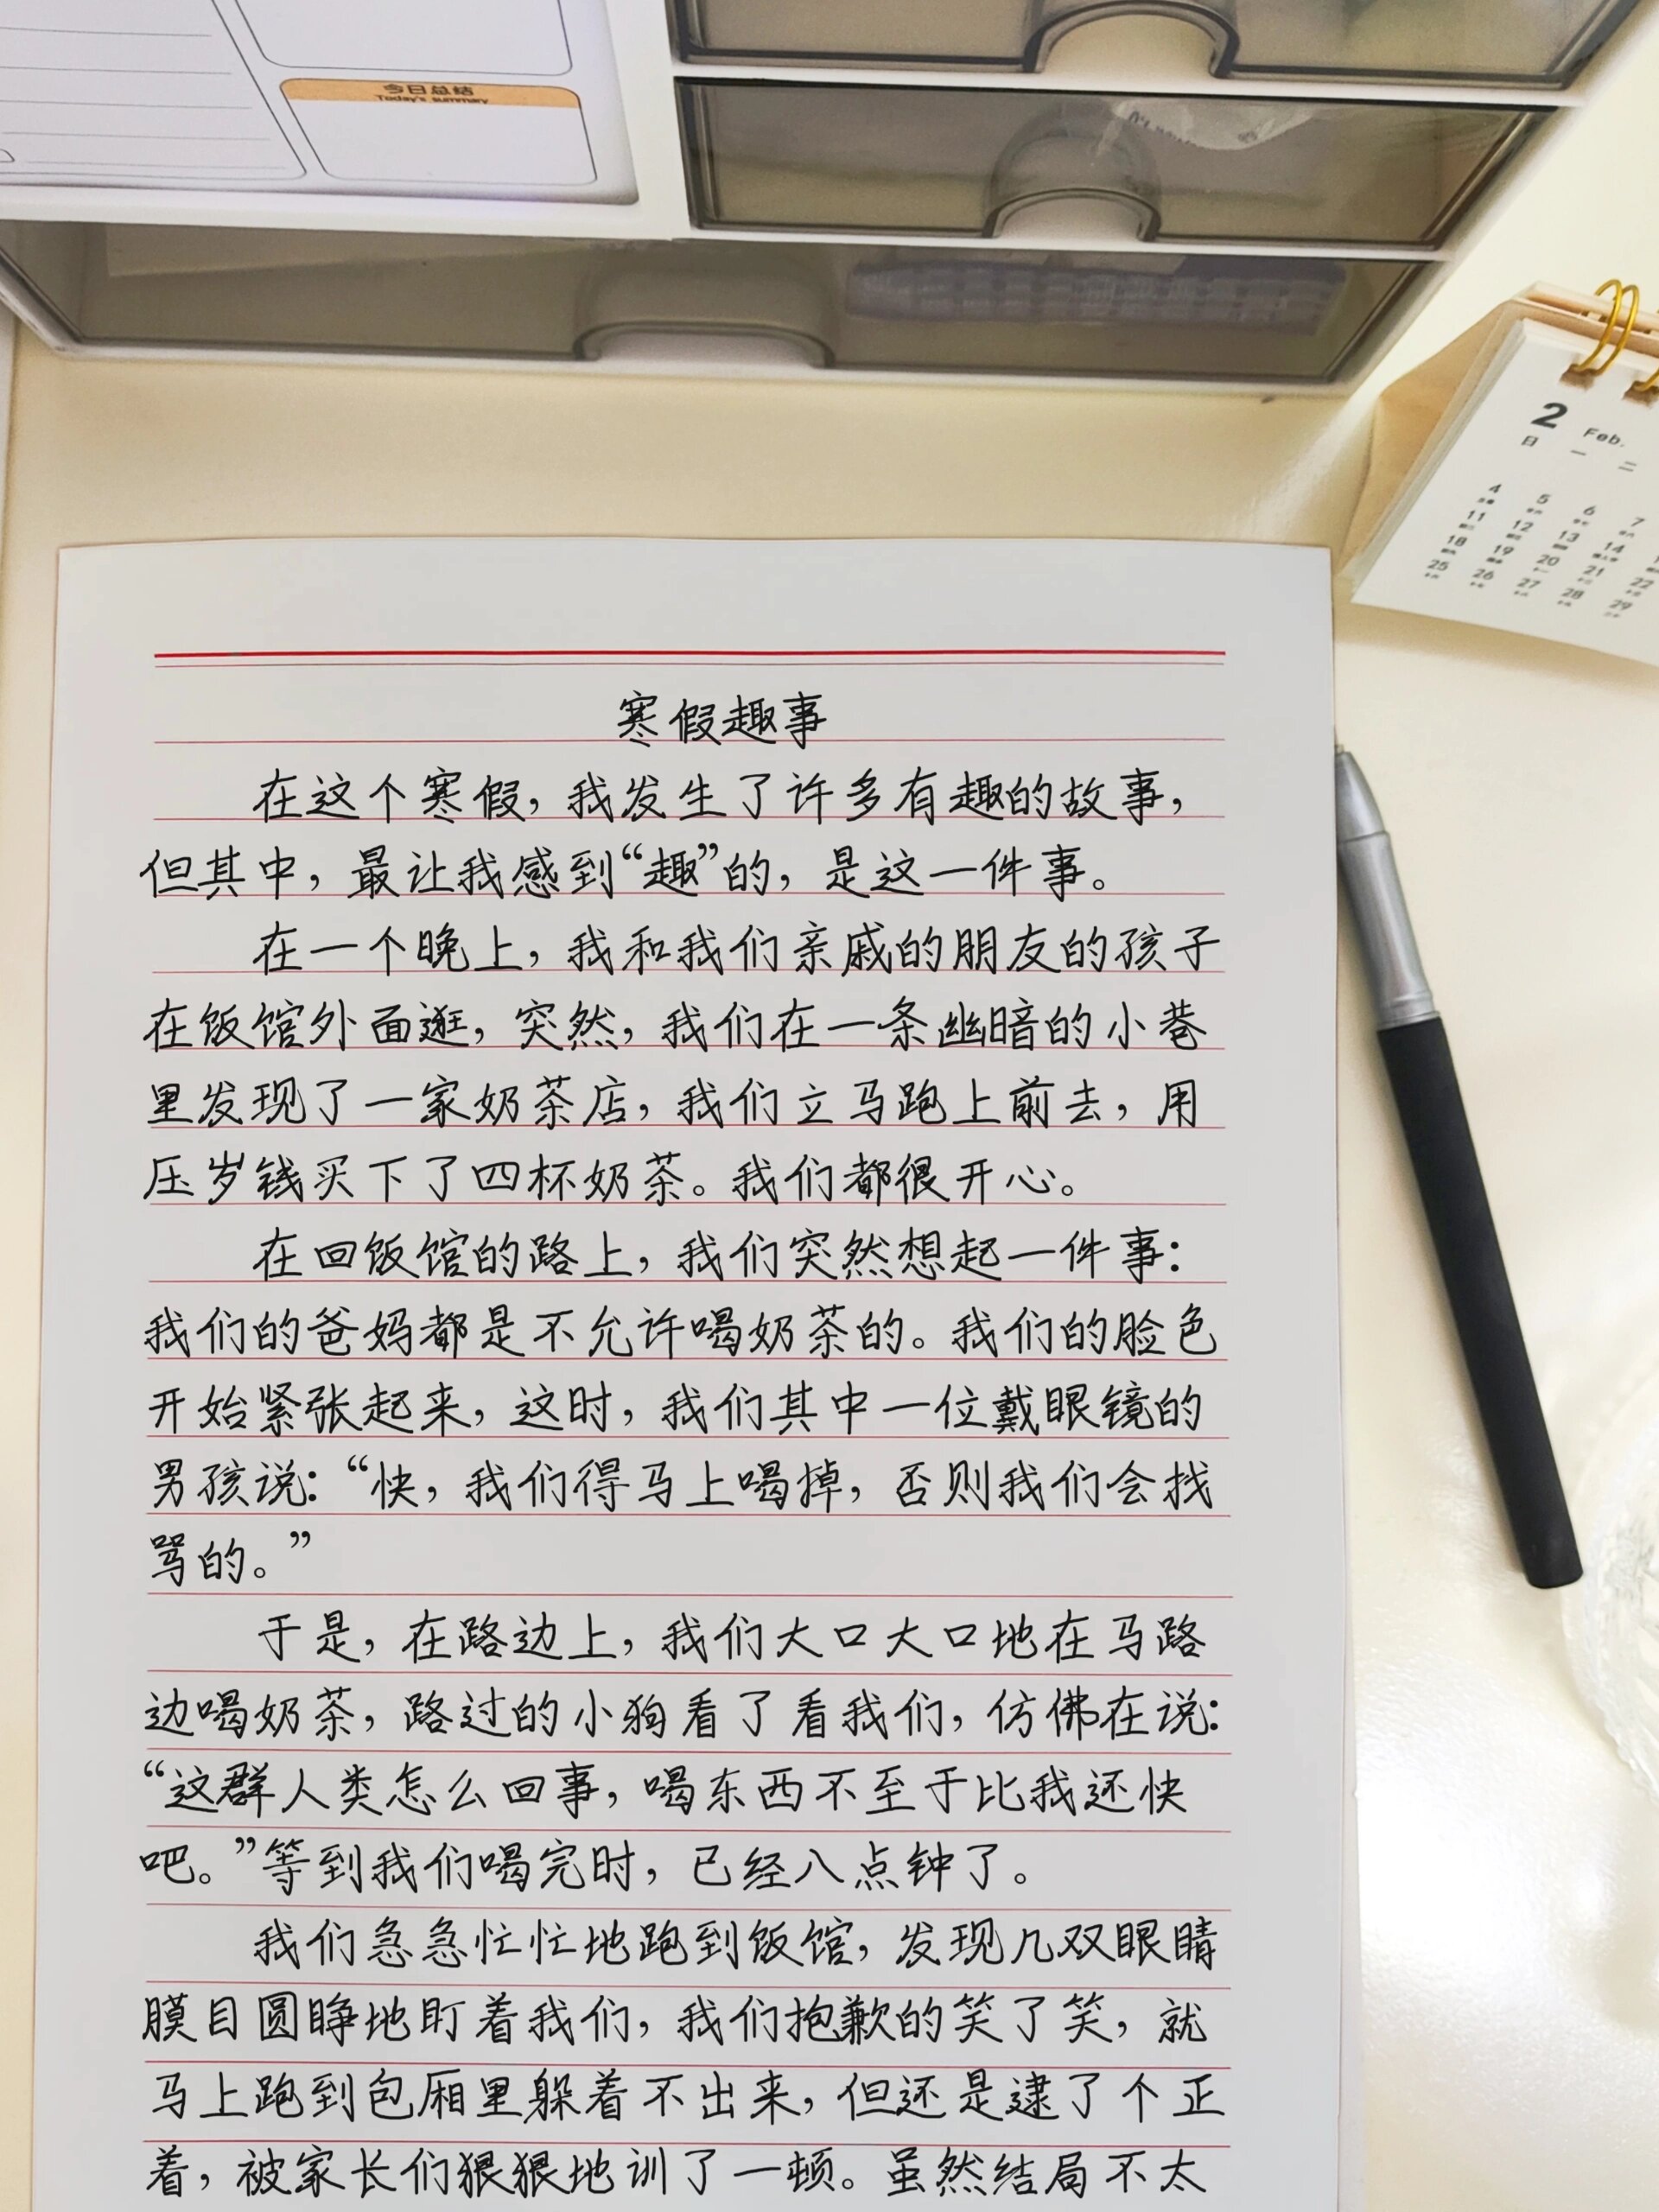 今日总结
Today's summary
2 Feb.
日 一 二
4 5 6 7
11 12 13 14
18 19 20 21 22
25 26 27 28 29
寒假趣事
在这个寒假，我发生了许多有趣的故事，
但其中，最让我感到“趣”的，是这一件事。
在一个晚上，我和我们亲戚的朋友的孩子
在饭馆外面逛，突然，我们在一条幽暗的小巷
里发现了一家奶茶店，我们立马跑上前去，用
压岁钱买下了四杯奶茶。我们都很开心。
在回饭馆的路上，我们突然想起一件事：
我们的爸妈都是不允许喝奶茶的。我们的脸色
开始紧张起来，这时，我们其中一位戴眼镜的
男孩说：“快，我们得马上喝掉，否则我们会找
骂的。”
于是，在路边上，我们大口大口地在马路
边喝奶茶，路过的小狗看了看我们，仿佛在说：
“这群人类怎么回事，喝东西不至于比我还快
吧。”等到我们喝完时，已经八点钟了。
我们急急忙忙地跑到饭馆，发现几双眼睛
膜目圆睁地盯着我们，我们抱歉的笑了笑，就
马上跑到包厢里躲着不出来，但还是逮了个正
着，被家长们狠狠地训了一顿。虽然结局不太